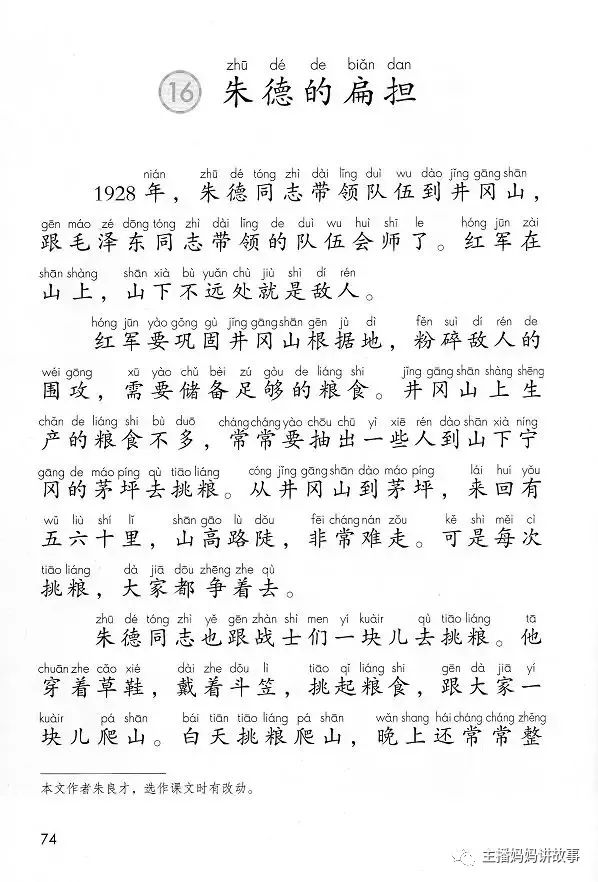 zhū dé de biǎn dan
16 朱德的扁担
nián zhū dé tóng zhì dài lǐng duì wu dào jǐng gāng shān
1928年，朱德同志带领队伍到井冈山，
gēn máo zé dōng tóng zhì dài lǐng de duì wu huì shī le hóng jūn zài
跟毛泽东同志带领的队伍会师了。红军在
shān shàng shān xià bù yuǎn chù jiù shì dí rén
山上，山下不远处就是敌人。
hóng jūn yào gǒng gù jǐng gāng shān gēn jù dì fěn suì dí rén de
红军要巩固井冈山根据地，粉碎敌人的
wéi gōng xū yào chǔ bèi zú gòu de liáng shi jǐng gāng shān shàng shēng
围攻，需要储备足够的粮食。井冈山上生
chǎn de liáng shi bù duō cháng cháng yào chōu chū yì xiē rén dào shān xià níng
产的粮食不多，常常要抽出一些人到山下宁
gāng de máo píng qù tiāo liáng cóng jǐng gāng shān dào máo píng lái huí yǒu
冈的茅坪去挑粮。从井冈山到茅坪，来回有
wǔ liù shí lǐ shān gāo lù dǒu fēi cháng nán zǒu kě shì měi cì
五六十里，山高路陡，非常难走。可是每次
tiāo liáng dà jiā dōu zhēng zhe qù
挑粮，大家都争着去。
zhū dé tóng zhì yě gēn zhàn shì men yí kuàir qù tiāo liáng tā
朱德同志也跟战士们一块儿去挑粮。他
chuān zhe cǎo xié dài zhe dǒu lì tiāo qǐ liáng shi gēn dà jiā yí
穿着草鞋，戴着斗笠，挑起粮食，跟大家一
kuàir pá shān bái tiān tiāo liáng pá shān wǎn shang hái cháng cháng zhěng
块儿爬山。白天挑粮爬山，晚上还常常整
本文作者朱良才，选作课文时有改动。
74
主播妈妈讲故事